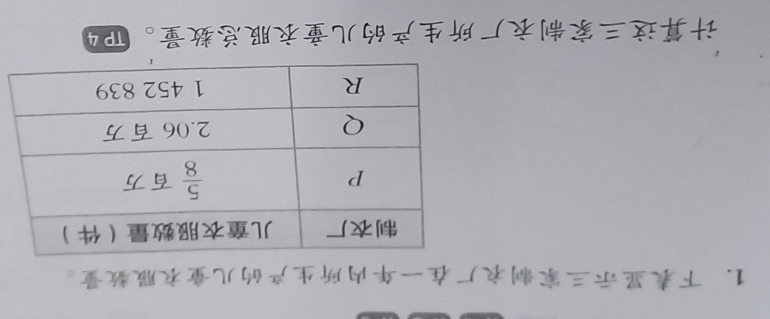 1. 下表显示三家制衣厂在一年内所生产的儿童衣服数量。
制衣厂 儿童衣服数量（件）
P 5/8 百万
Q 2.06 百万
R 1 452 839
计算这三家制衣厂所生产的儿童衣服总数量。 TP 4